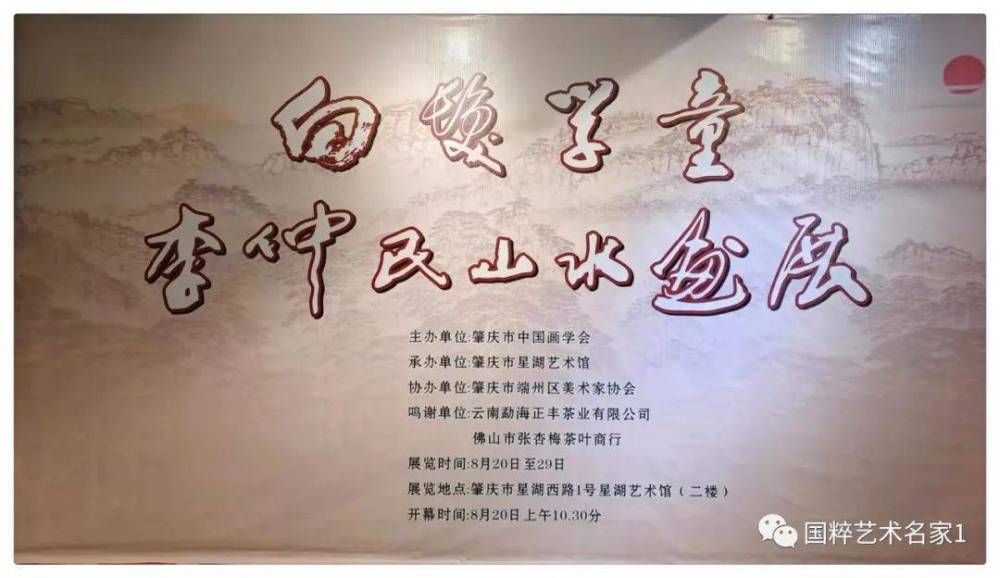 白发学童
李仲民山水画展
主办单位:肇庆市中国画学会
承办单位:肇庆市星湖艺术馆
协办单位:肇庆市端州区美术家协会
鸣谢单位:云南勐海正丰茶业有限公司
佛山市张杏梅茶叶商行
展览时间:8月20日至29日
展览地点:肇庆市星湖西路1号星湖艺术馆(二楼)
开幕时间:8月20日上午10.30分
国粹艺术名家1